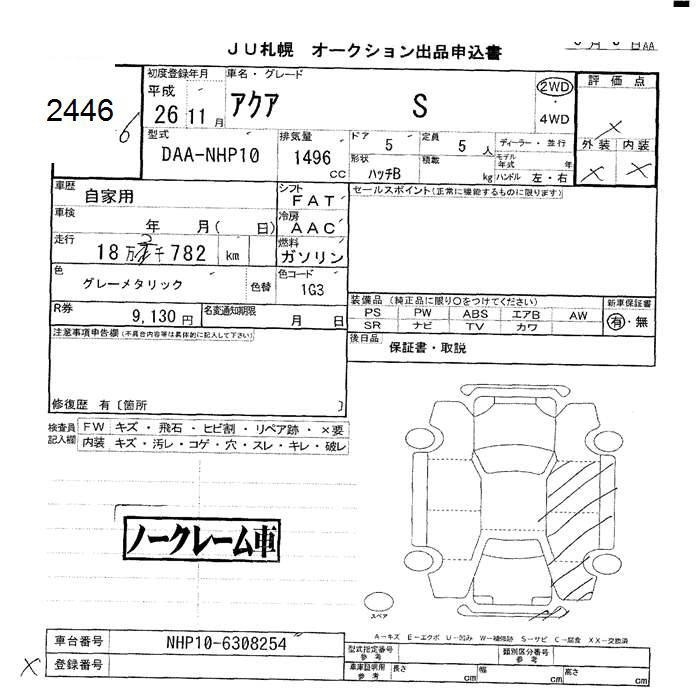 JU札幌 オークション出品申込書
AA
2446
初度登録年月
車名・グレード
平成
26 11月
アクア S
2WD
・
4WD
評価点
外装 内装
型式
DAA-NHP10
排気量
1496
CC
ドア
5
定員
5人
ディーラー・並行
形状
ハッチB
積載
kg
モデル年式
年
ハンドル 左・右
車歴
自家用
シフト
FAT
セールスポイント(正常に機能するものに限ります)
車検
年 月( 日)
冷房
AAC
走行
18万 千782 km
燃料
ガソリン
色
グレーメタリック
色替
色コード
1G3
R券
9,130円
名変通知期限
月 日
装備品(純正品に限り○をつけてください)
PS PW ABS エアB AW
SR ナビ TV カワ
新車保証書
有・無
注意事項申告欄(不具合内容等は具体的に記入して下さい)
後日品
保証書・取説
修復歴 有〔箇所 〕
検査員記入欄
FW キズ・飛石・ヒビ割・リペア跡・×要
内装 キズ・汚レ・コゲ・穴・スレ・キレ・破レ
ノークレーム車
スペア
A-キズ E-エクボ U-凹み W-補修跡 S-サビ C-腐食 XX-交換済
車台番号
NHP10-6308254
型式指定番号
参考
類別区分番号
参考
X
登録番号
車庫証明用
参考
長さ
cm
幅
cm
高さ
cm